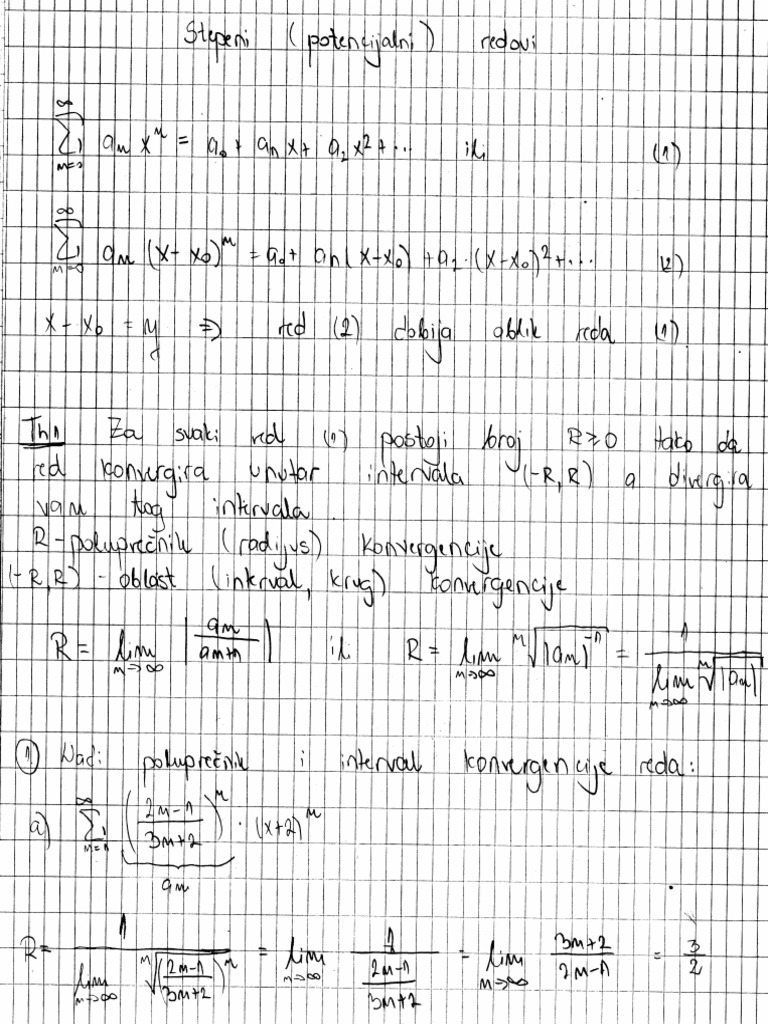 Stepeni (potencijalni) redovi
∞∑n=0 aₙ xⁿ = a₀ + a₁x + a₂x² + ... ili (1)
∞∑n=0 aₙ (x-x₀)ⁿ = a₀ + a₁(x-x₀) + a₂·(x-x₀)² + ... (2)
x - x₀ = y ⇒ red (2) dobija oblik reda (1)
Th1 Za svaki red (1) postoji broj R≥0 tako da
red konvergira unutar intervala (-R,R) a divergira
van tog intervala.
R-poluprečnik (radijus) konvergencije
(-R,R) - oblast (interval, krug) konvergencije
R = lim n→∞ |aₙ/aₙ₊₁| ili R = lim n→∞ ⁿ√(|aₙ|⁻¹) = 1/(lim n→∞ ⁿ√|aₙ|)
① Nađi poluprečnik i interval konvergencije reda:
a) ∞∑n=1 ((2n-1)/(3n+2))ⁿ · (x+2)ⁿ
aₙ
R = 1/(lim n→∞ ⁿ√((2n-1)/(3n+2))ⁿ) = lim n→∞ 1/((2n-1)/(3n+2)) = lim n→∞ (3n+2)/(2n-1) = 3/2